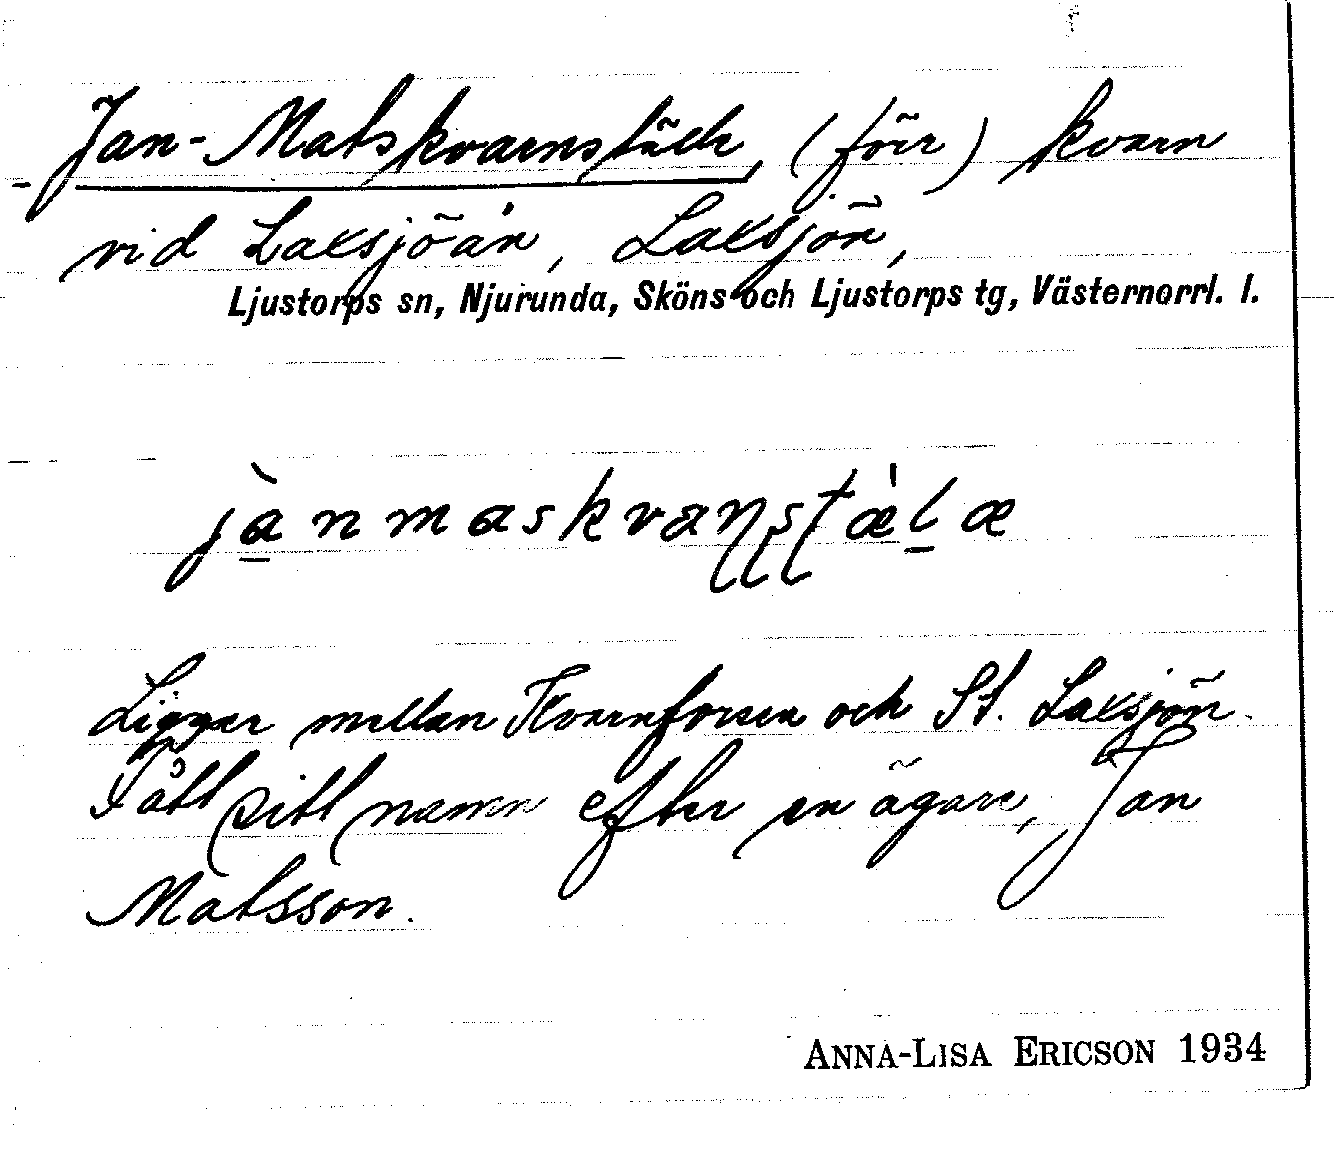 Jan-Matskvarnställe, (förr) kvarn
vid Laxsjöån, Laxsjön,
Ljustorps sn, Njurunda, Sköns och Ljustorps tg, Västernorrl. l.
jànmaskvaɳʂʈæ̀læ
Ligger mellan Kvarnforsen och St. Laxsjön.
Fått sitt namn efter en ägare, Jan
Matsson.
ANNA-LISA ERICSON 1934